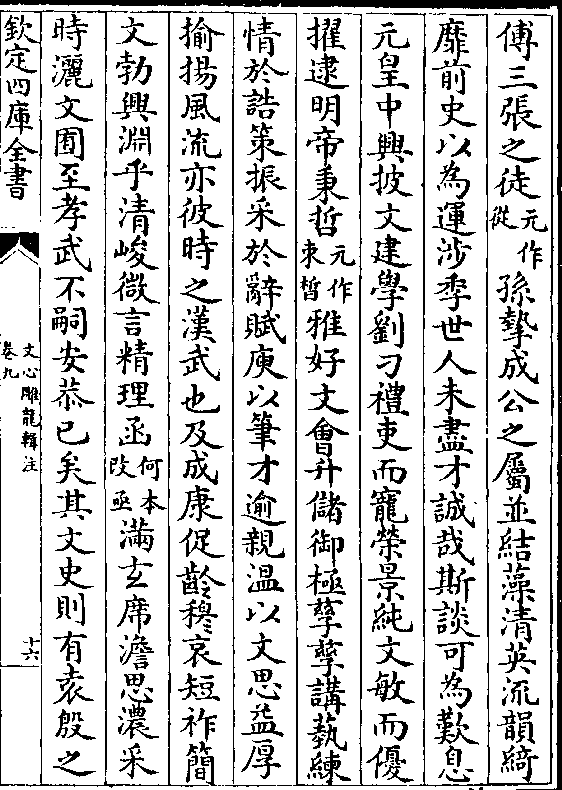 傅三張之徒元作從孫摯成公之屬並結藻清英流韻綺
靡前史以為運涉季世人未盡才誠哉斯談可為歎息
元皇中興披文建學劉刁禮吏而寵榮景純文敏而優
擢逮明帝秉哲元作束晳雅好文會升儲御極孳孳講藝練
情於誥策振采於辭賦庾以筆才逾親溫以文思益厚
揄揚風流亦彼時之漢武也及成康促齡穆哀短祚簡
文勃興淵乎清峻微言精理函何本改亟滿玄席澹思濃采
時灑文囿至孝武不嗣安恭已矣其文史則有袁殷之
欽定四庫全書
文心雕龍輯注
卷九
十六